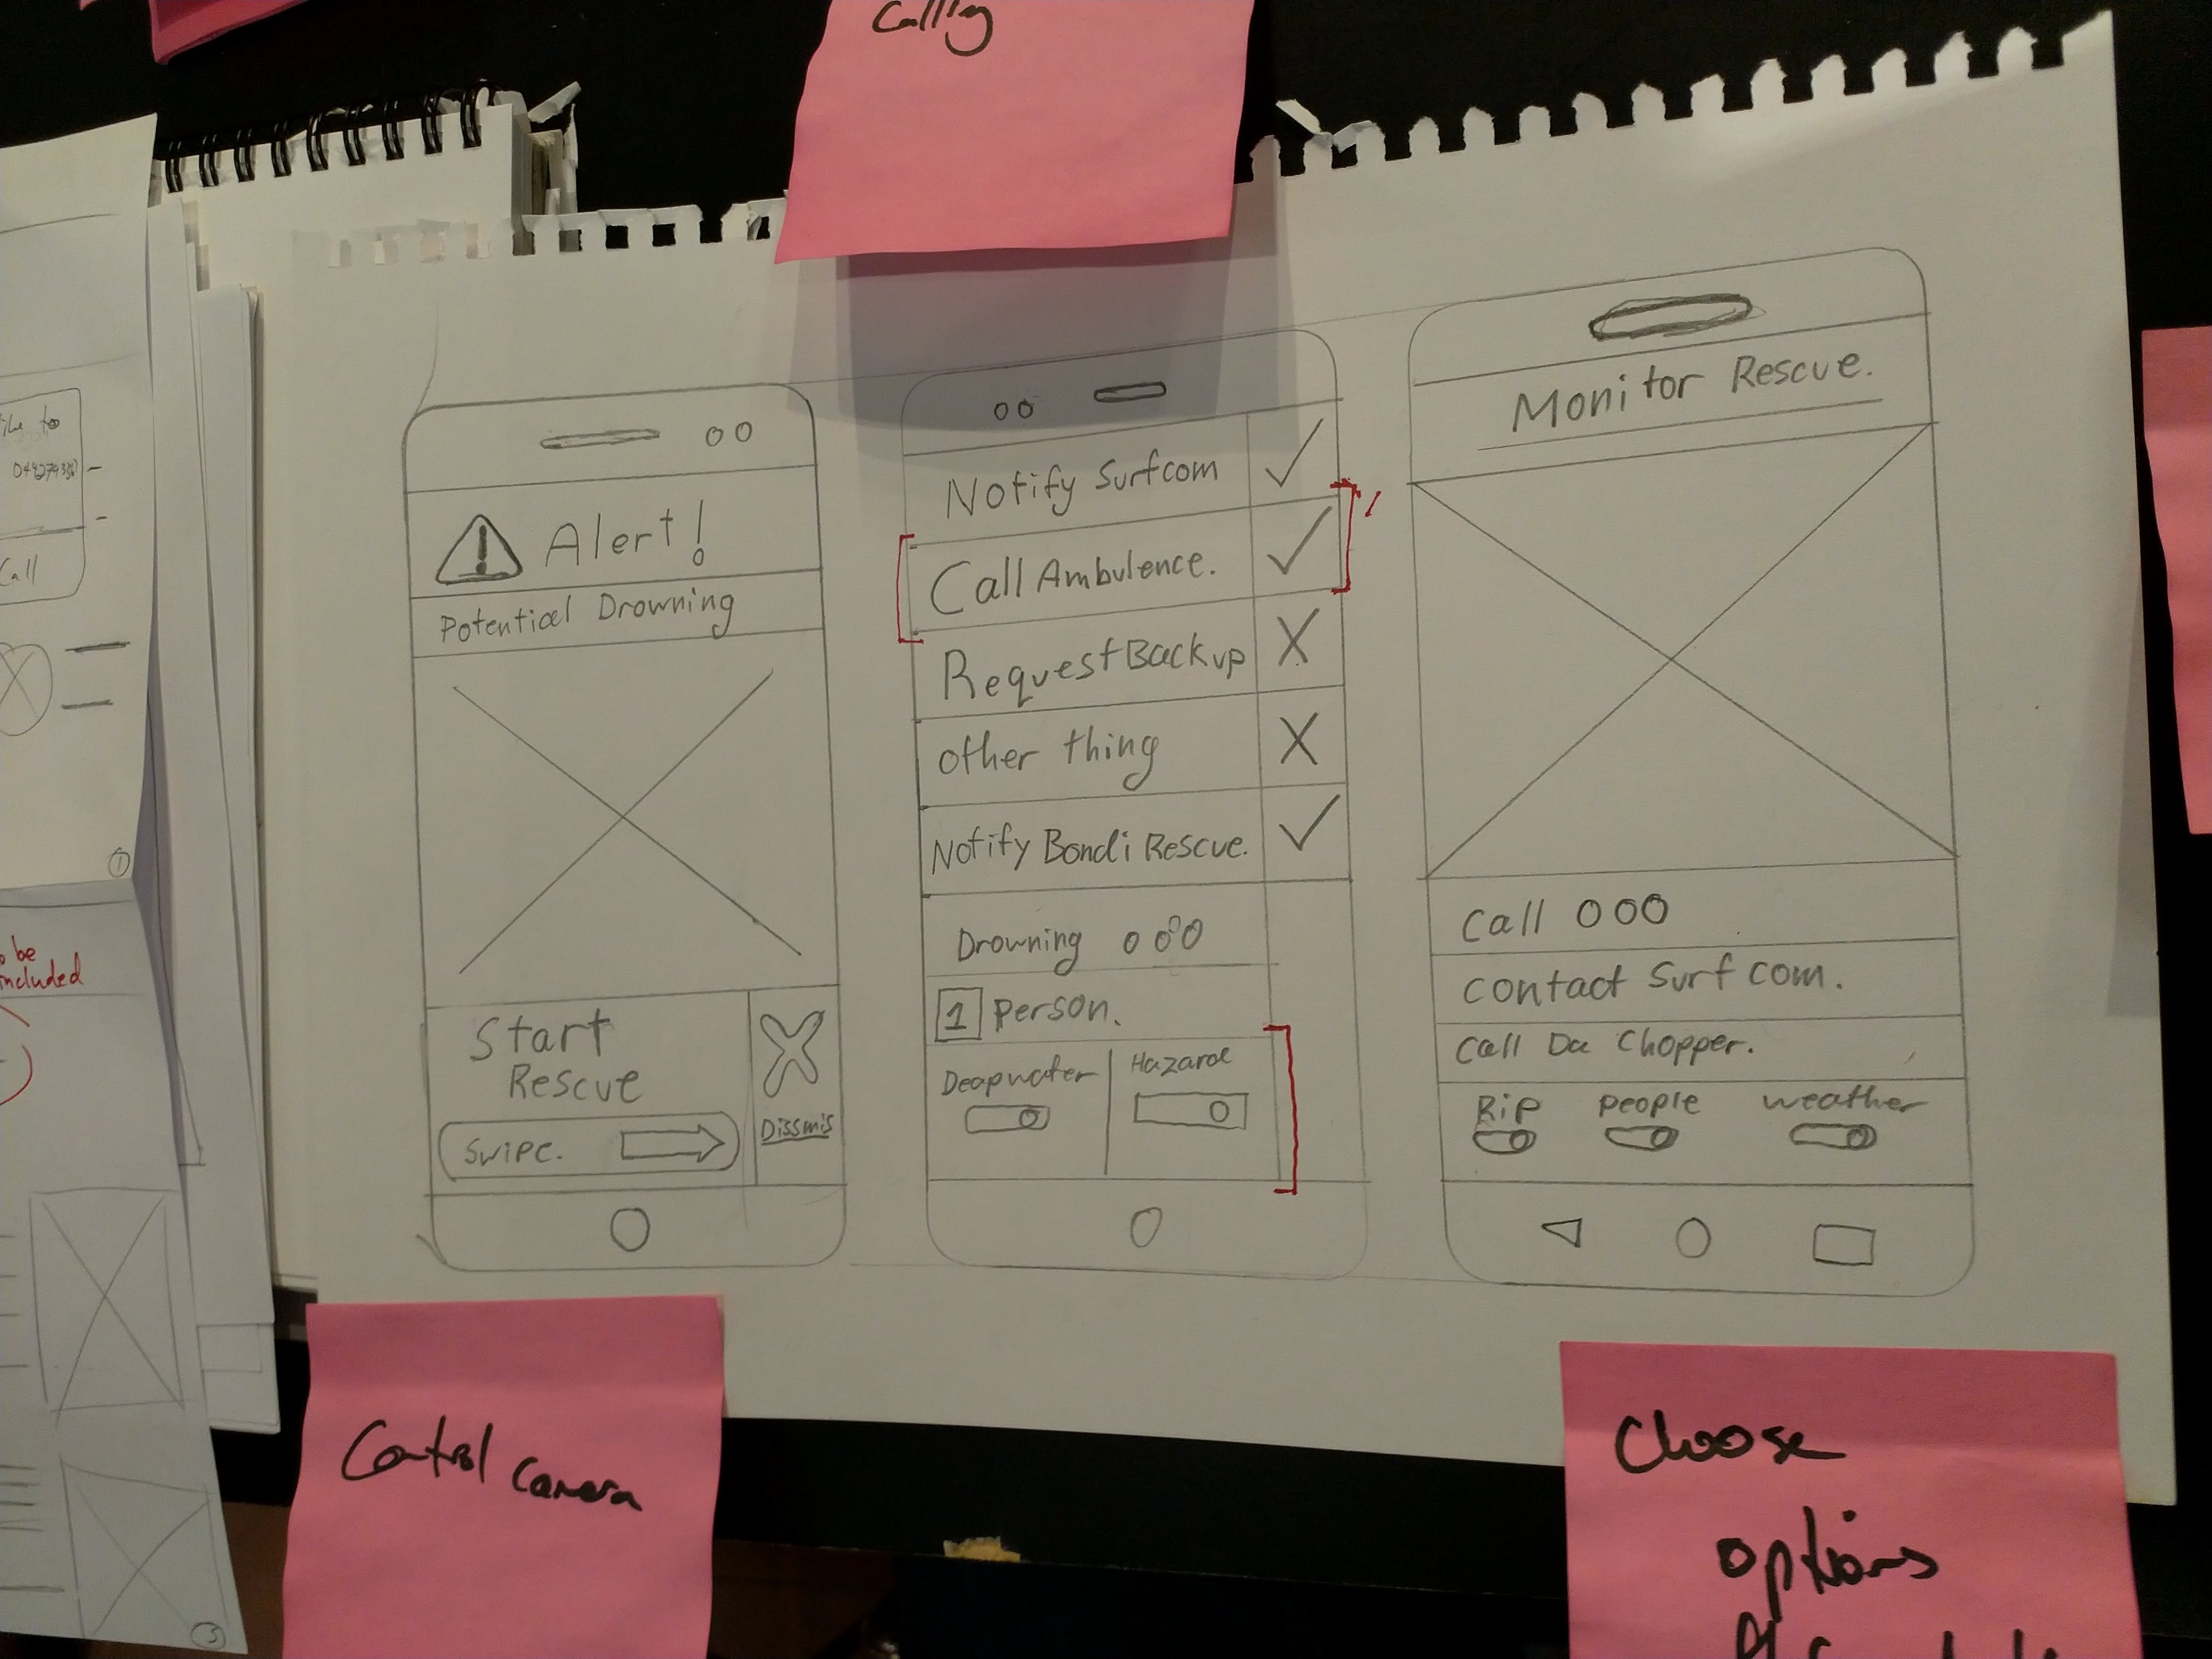 o be
included
①
Call
5
Control Camera
Calling
Alert!
Potential Drowning
Start
Rescue
Swipe.
Dissmis
Notify Surfcom
Call Ambulence.
Request Backup
other thing
Notify Bondi Rescue.
Drowning
1 Person.
Deapwater
Hazard
Monitor Rescue.
Call 000
Contact Surf com.
Call Da Chopper.
Rip people weather
Choose
options